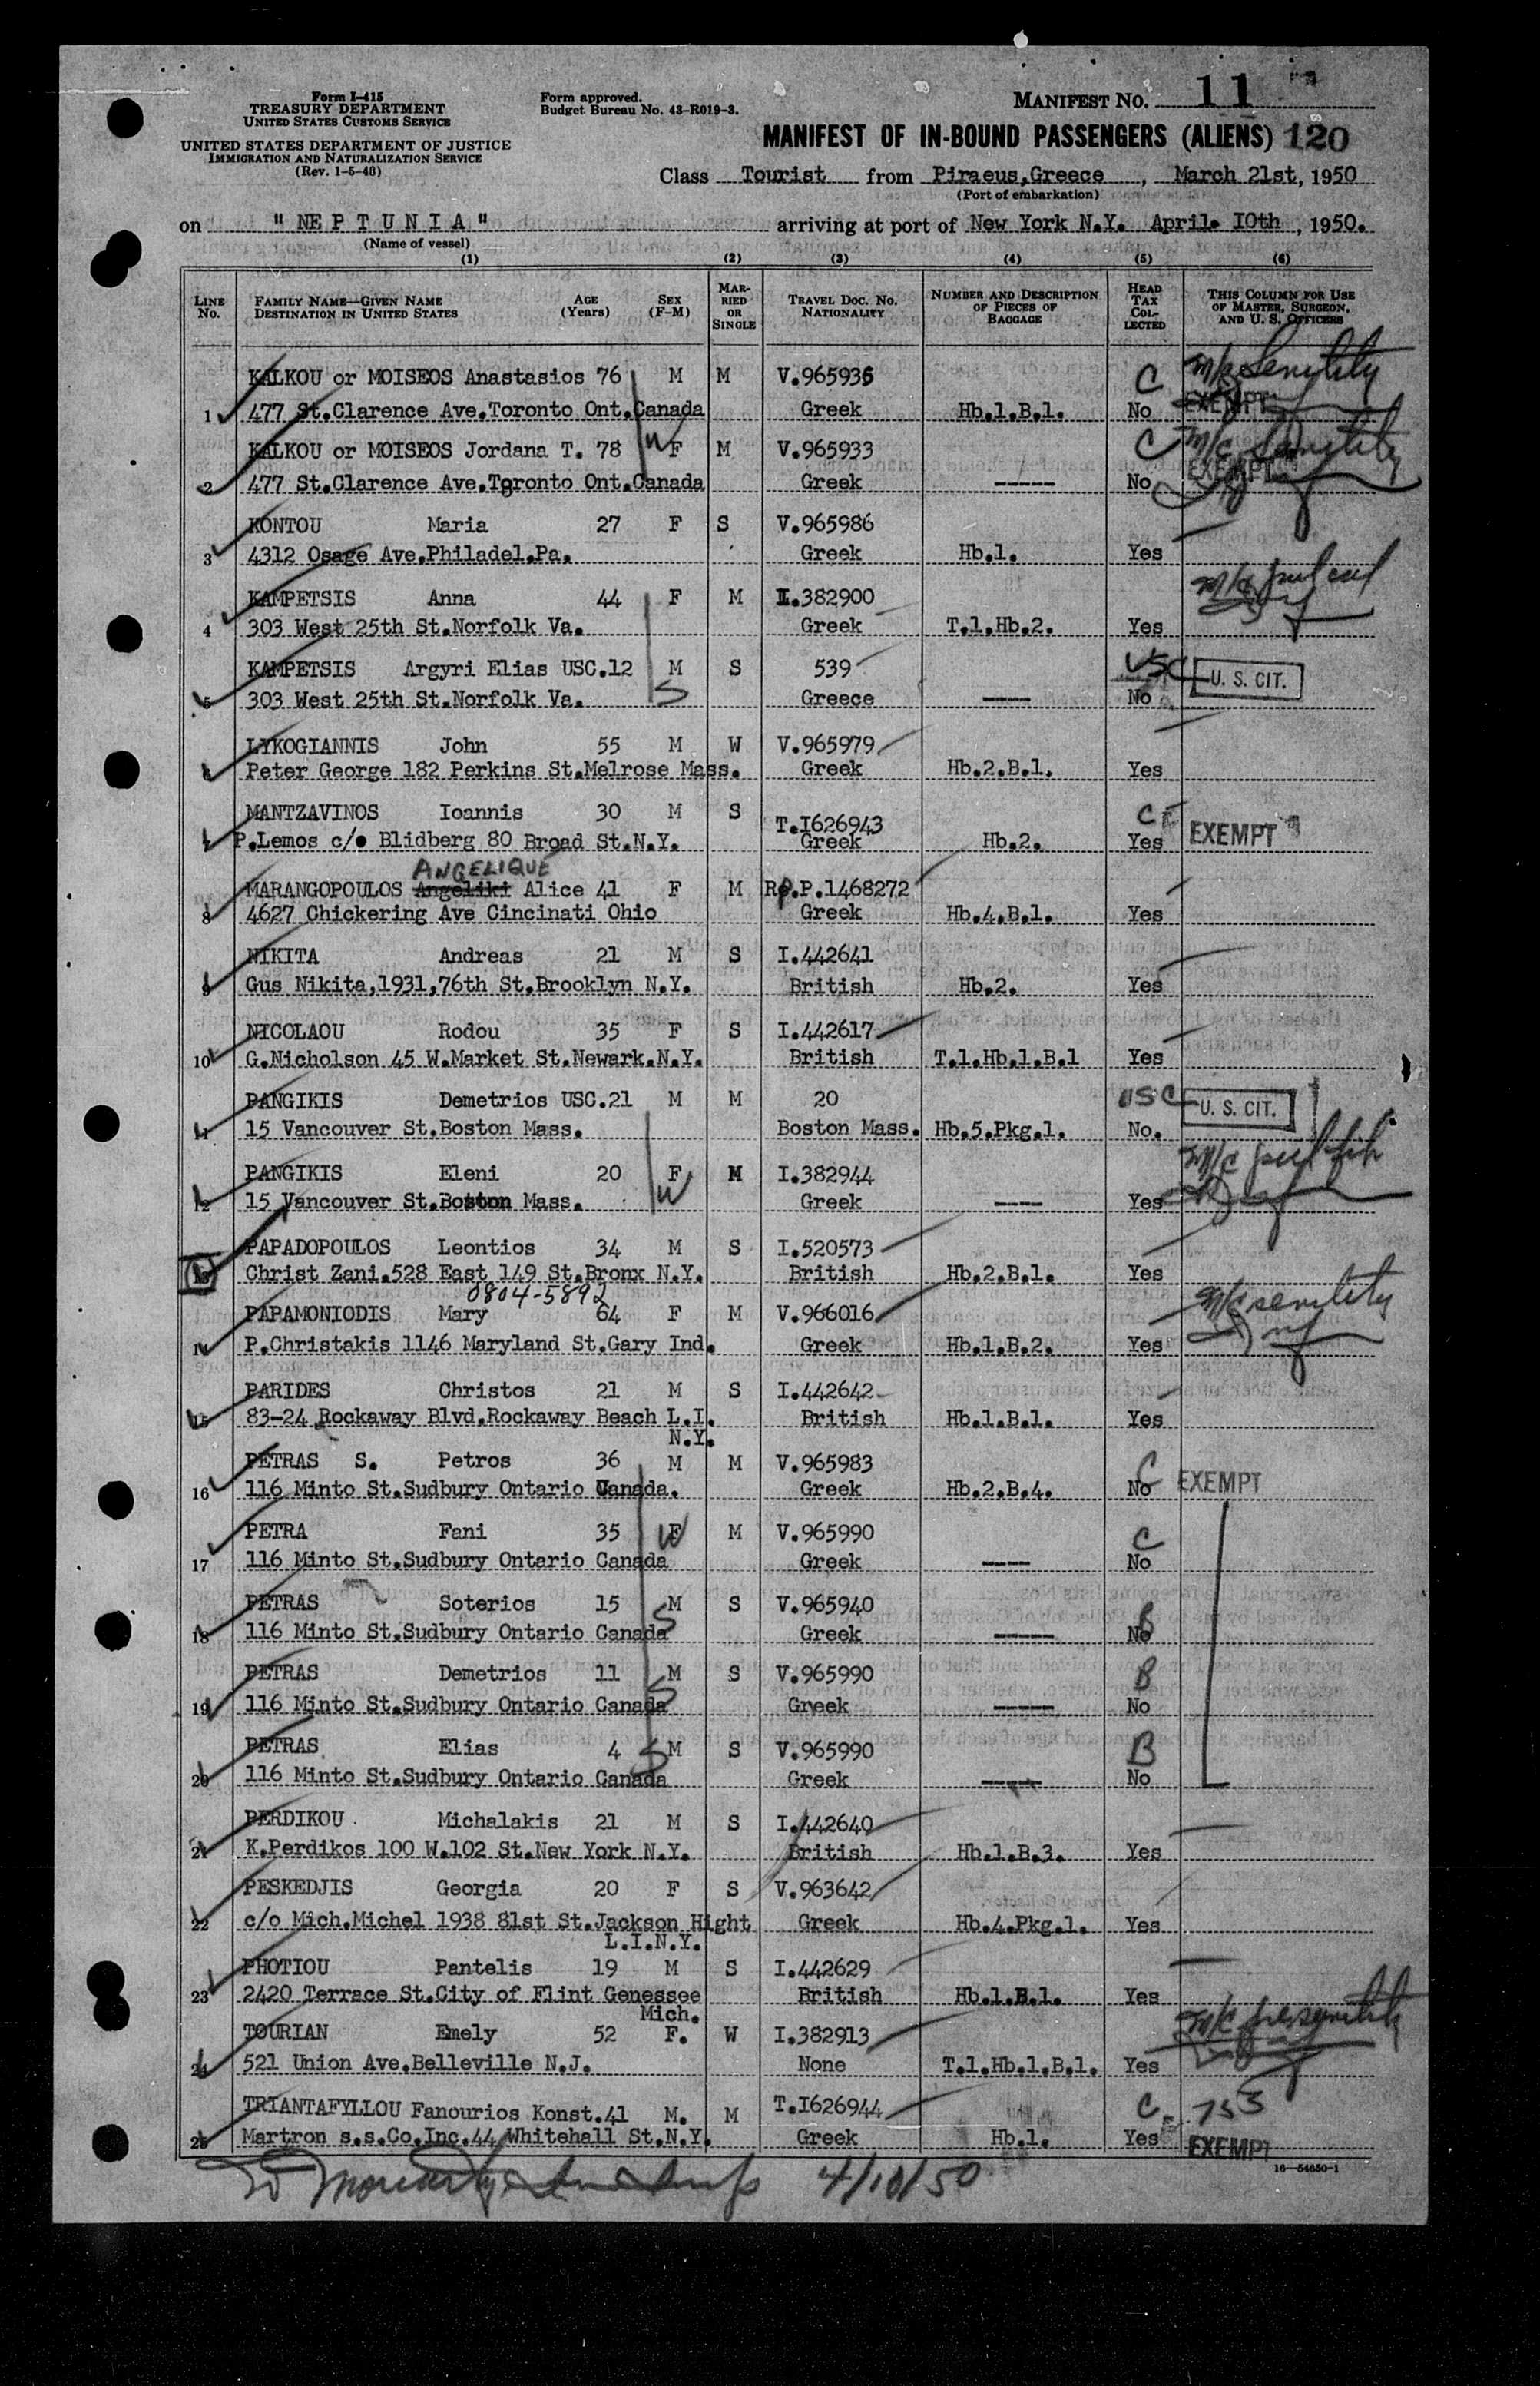 Form I-415
TREASURY DEPARTMENT
UNITED STATES CUSTOMS SERVICE
UNITED STATES DEPARTMENT OF JUSTICE
IMMIGRATION AND NATURALIZATION SERVICE
(Rev. 1-5-48)
Form approved.
Budget Bureau No. 43-R019-3.
MANIFEST NO. 11
MANIFEST OF IN-BOUND PASSENGERS (ALIENS) 120
Class Tourist from Piraeus,Greece, March 21st, 1950
(Port of embarkation)
on "NEPTUNIA" arriving at port of New York N.Y. April. I0th, 1950.
(Name of vessel)
(1) (2) (3) (4) (5) (6)
LINE No. FAMILY NAME—GIVEN NAME DESTINATION IN UNITED STATES AGE (Years) SEX (F-M) MARRIED OR SINGLE TRAVEL DOC. NO. NATIONALITY NUMBER AND DESCRIPTION OF PIECES OF BAGGAGE HEAD TAX COLLECTED THIS COLUMN FOR USE OF MASTER, SURGEON, AND U. S. OFFICERS
KALKOU or MOISEOS Anastasios 76 M M V.965935 C M/c Senility
1 477 St.Clarence Ave.Toronto Ont.Canada Greek Hb.1.B.1. No EXEMPT
KALKOU or MOISEOS Jordana T. 78 W F M V.965933 C M/c Senility
2 477 St.Clarence Ave.Toronto Ont.Canada Greek ----- No EXEMPT
KONTOU Maria 27 F S V.965986
3 4312 Osage Ave.Philadel.Pa. Greek Hb.1. Yes
KAMPETSIS Anna 44 F M I.382900
4 303 West 25th St.Norfolk Va. Greek T.1.Hb.2. Yes
KAMPETSIS Argyri Elias USC.12 M S 539 USC U. S. CIT.
5 303 West 25th St.Norfolk Va. S Greece ---- No
LYKOGIANNIS John 55 M W V.965979
6 Peter George 182 Perkins St.Melrose Mass. Greek Hb.2.B.1. Yes
MANTZAVINOS Ioannis 30 M S T.I626943 C
7 P.Lemos c/o Blidberg 80 Broad St.N.Y. Greek Hb.2. Yes EXEMPT
ANGELIQUE
MARANGOPOULOS Angeliki Alice 41 F M Rp.P.1468272
8 4627 Chickering Ave Cincinati Ohio Greek Hb.4.B.1. Yes
NIKITA Andreas 21 M S I.442641
9 Gus Nikita,1931,76th St.Brooklyn N.Y. British Hb.2. Yes
NICOLAOU Rodou 35 F S I.442617
10 G.Nicholson 45 W.Market St.Newark.N.Y. British T.1.Hb.1.B.1 Yes
PANGIKIS Demetrios USC.21 M M 20 USC U. S. CIT.
11 15 Vancouver St.Boston Mass. Boston Mass. Hb.5.Pkg.1. No.
PANGIKIS Eleni 20 F M I.382944
12 15 Vancouver St.Boston Mass. W Greek ---- Yes
PAPADOPOULOS Leontios 34 M S I.520573
13 Christ Zani.528 East 149 St.Bronx N.Y. British Hb.2.B.1. Yes
0804-5892
PAPAMONIODIS Mary 64 F M V.966016 M/c senility
14 P.Christakis 1146 Maryland St.Gary Ind. Greek Hb.1.B.2. Yes
PARIDES Christos 21 M S I.442642
15 83-24 Rockaway Blvd.Rockaway Beach L.I. British Hb.1.B.1. Yes
N.Y.
PETRAS S. Petros 36 M M V.965983 C EXEMPT
16 116 Minto St.Sudbury Ontario Canada. Greek Hb.2.B.4. No
PETRA Fani 35 W F M V.965990 C
17 116 Minto St.Sudbury Ontario Canada Greek ---- No
PETRAS Soterios 15 M S V.965940 B
18 116 Minto St.Sudbury Ontario Canada S Greek ----- No
PETRAS Demetrios 11 M S V.965990 B
19 116 Minto St.Sudbury Ontario Canada S Greek ----- No
PETRAS Elias 4 S M S V.965990 B
20 116 Minto St.Sudbury Ontario Canada Greek ----- No
PERDIKOU Michalakis 21 M S I.442640
21 K.Perdikos 100 W.102 St.New York N.Y. British Hb.1.B.3. Yes
PESKEDJIS Georgia 20 F S V.963642
22 c/o Mich.Michel 1938 81st St.Jackson Hight Greek Hb.4.Pkg.1. Yes
L.I.N.Y.
PHOTIOU Pantelis 19 M S I.442629
23 2420 Terrace St.City of Flint Genessee British Hb.1.B.1. Yes
Mich.
TOURIAN Emely 52 F. W I.382913
24 521 Union Ave.Belleville N.J. None T.1.Hb.1.B.1. Yes
TRIANTAFYLLOU Fanourios Konst.41 M. M T.I626944 C 753
25 Martron s.s.Co.Inc.44 Whitehall St.N.Y. Greek Hb.1. Yes EXEMPT
16—54650-1
4/10/50